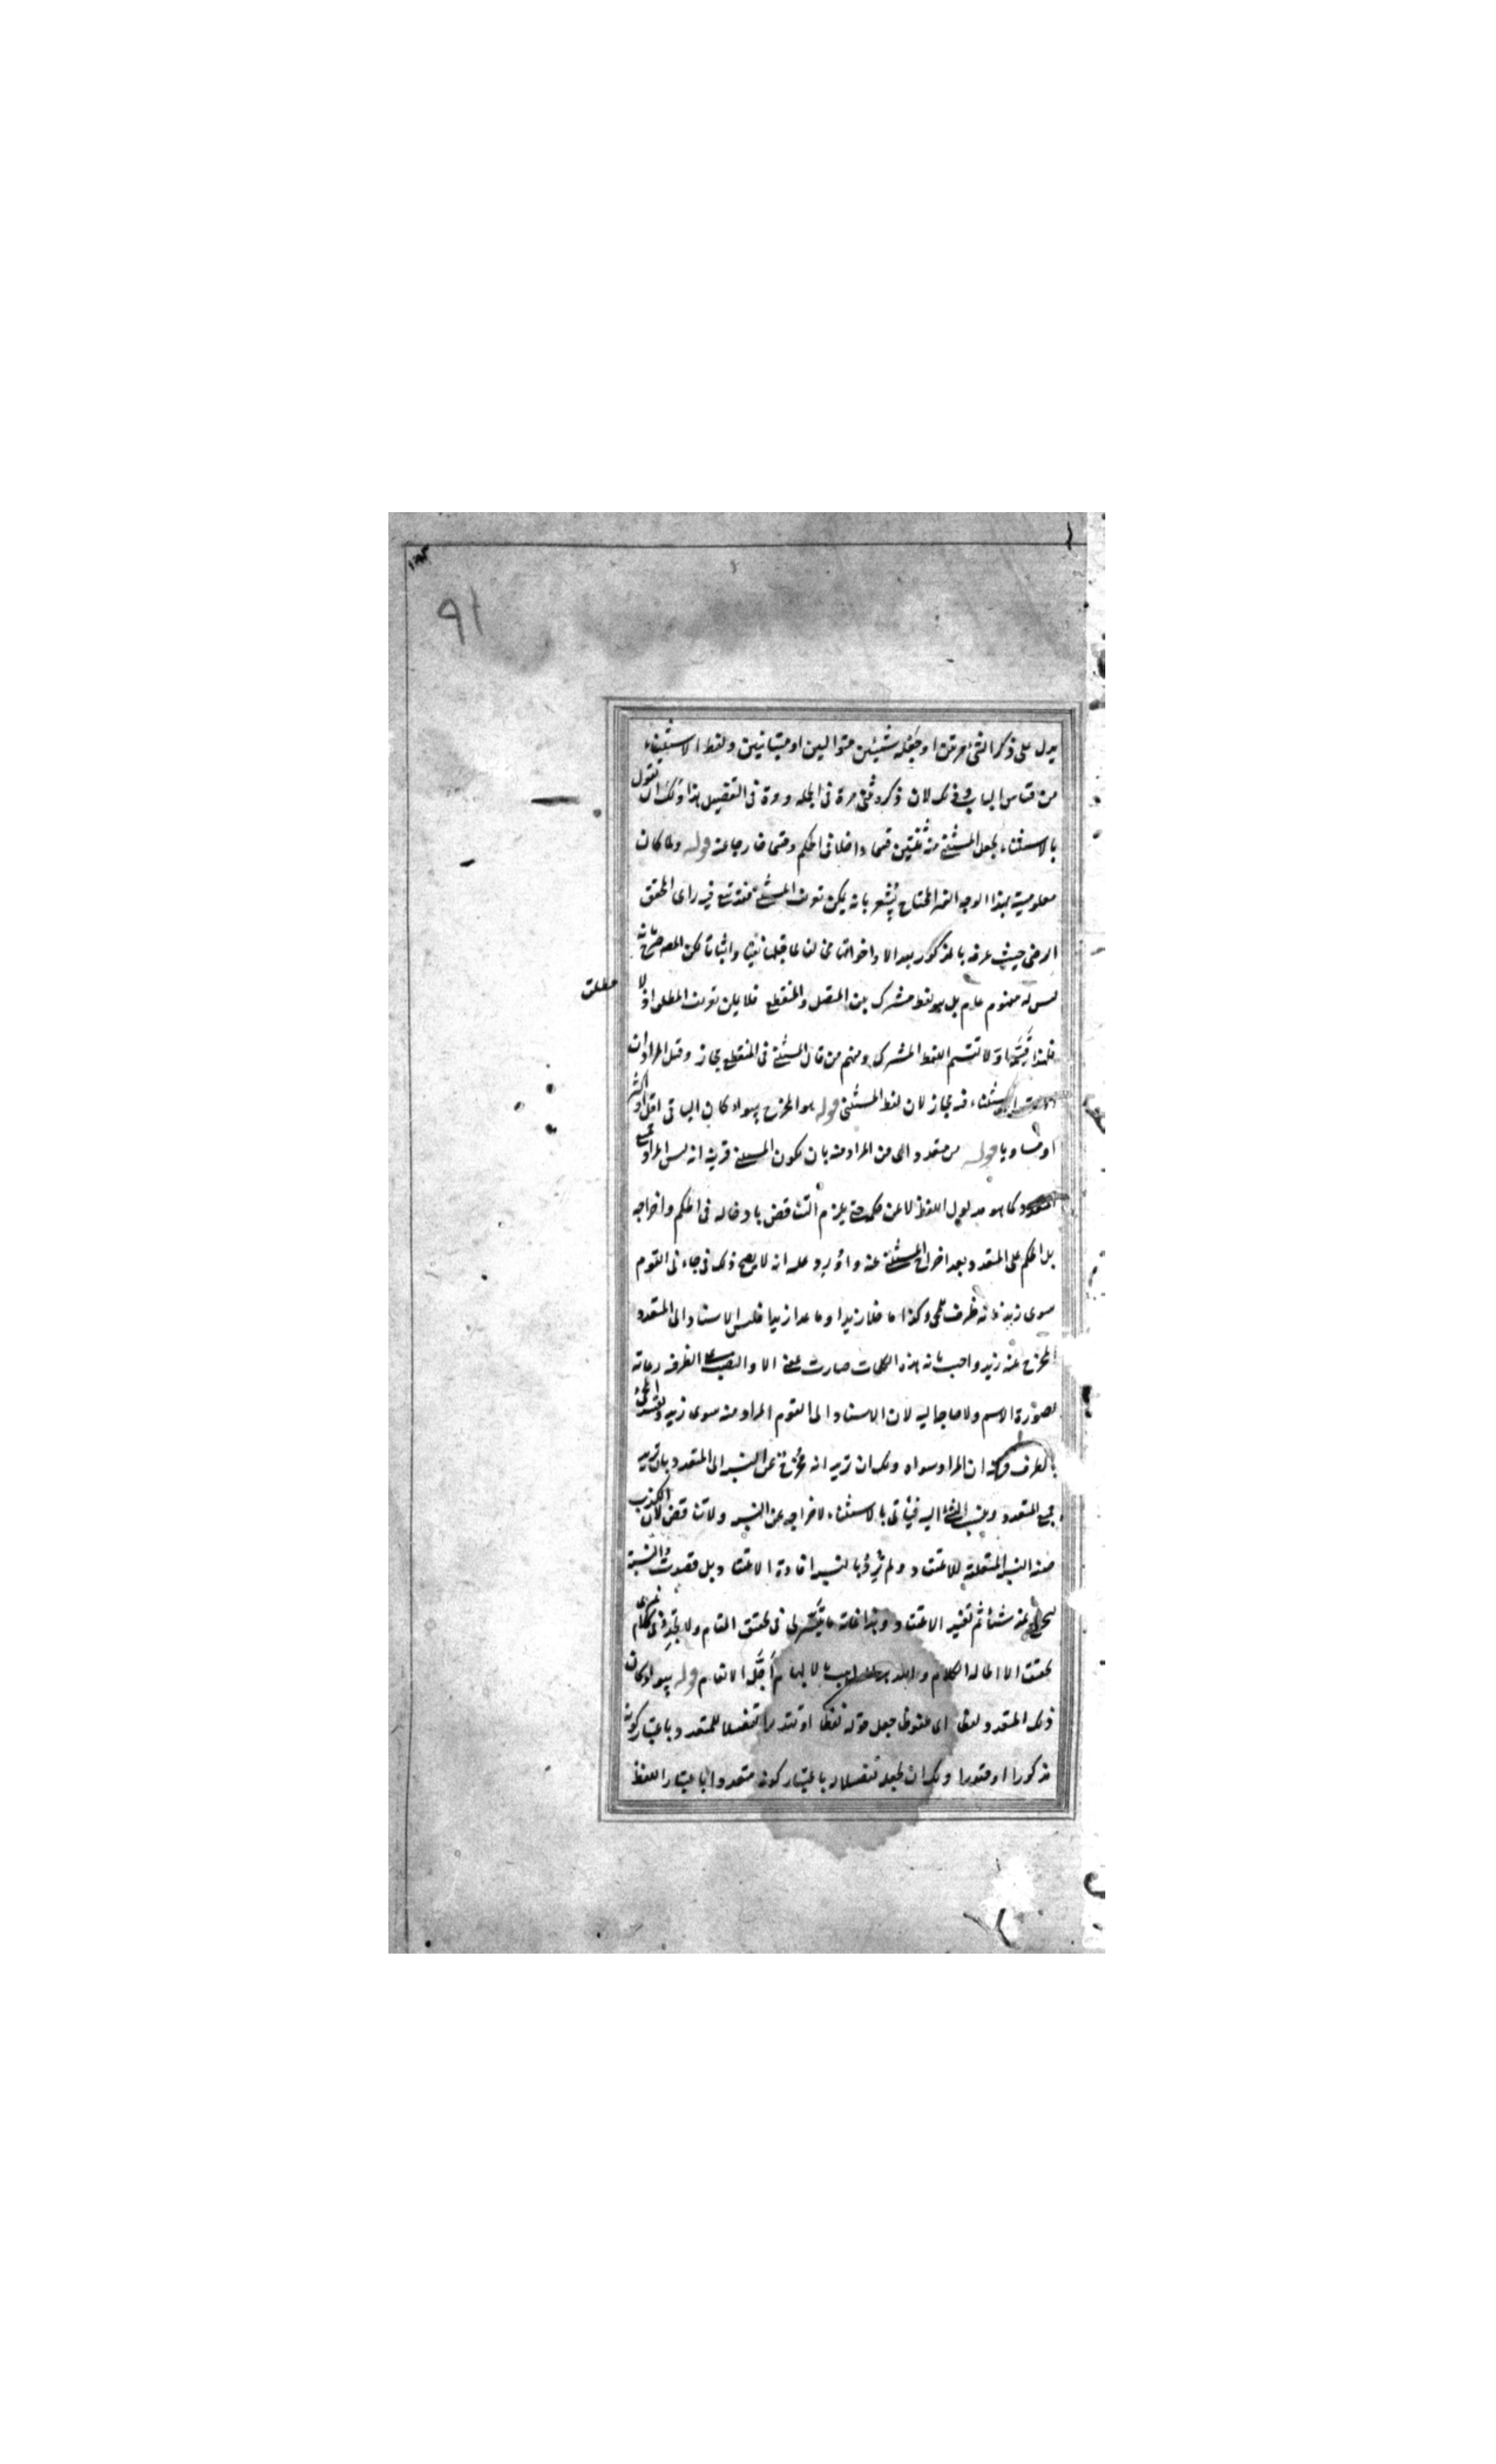 يدل على ذكر الشئ مرتين او جعله شيئين متواليين او متباينين ولفظ الاستثناء
من قياس الباب وذلك لان ذكره ثنى مرة فى الجملة ومرة فى التفصيل هذا ولك ان نقول
بالاستثناء يجعل المستثنى منه ثنتين قسما داخلا فى الحكم وقسما خارجا عنه قوله ولما كان
معلومية بهذا الوجه الغير المحتاج يشعر بانه يمكن تعريف المستثنى فقد تبع فيه راى المحقق
الرضى حيث عرفه بالمذكور بعد الا واخواتها مخالفا لما قبلها نفيا واثباتا لكن المص صرح بانه
ليس له مفهوم عام بل هو لفظ مشترك بين المتصل والمنقطع فلا يمكن تعريف المطلق اولا
مطلق
فلهذا قسمه اولا تقسيم اللفظ المشترك ومنهم من قال المستثنى فى المنقطع مجاز وقيل المراد ان
الاستثناء فيه مجاز لان لفظ المستثنى قوله هو المخرج سواء كان الباقى اقل او اكثر
او مساويا قوله من متعدد الى من المراد منه بان يكون المستثنى قرينة انه ليس المراد
المتعدد كما هو مدلول اللفظ لا عن حكمه حتى يلزم التناقض بادخاله فى الحكم واخراجه
بل الحكم على المتعدد بعد اخراج المستثنى عنه واورد عليه انه لا يصح ذلك فى جاءنى القوم
سوى زيد فانه ظرف للمجئ وكذا ما خلا زيدا وما عدا زيدا فليس الاسناد الى المتعدد
المخرج عنه زيد واجيب بانه هذه الكلمات صارت بمعنى الا والنصب على الظرف رعاية
لصورة الاسم ولا حاجة اليه لان الاسناد الى القوم المراد منه سوى زيد وتقييد المجئ
بالظرف قرينة ان المراد سواه ولك ان تريد انه مخرج عن النسبة الى المتعدد بان تريد
جميع المتعدد وينسب الشئ اليه فيأتى بالاستثناء لاخراجه عن النسبة ولا تناقض لان الكذب
صفة النسبة المتعلقة للاعتقاد ولم ترد بالنسبة افادة الاعتقاد بل قصدت النسبة
ليخرج عنه شيئا ثم تفيد الاعتقاد وهذا غاية ما تيسر لى فى تحقيق المقام ولا تجد فى كلام غيرى
تحقق الا اطالة الكلام والله سبحانه اجيب بالالهام اجل الانعام قوله سواء كان
ذلك المتعدد لفظا اى ملفوظا جعل قوله لفظا او تقديرا تفصيلا للمتعدد باعتبار كونه
مذكورا او مقدرا ولك ان تجعله تفصيلا له باعتبار كونه متعددا باعتبار اللفظ
٩١